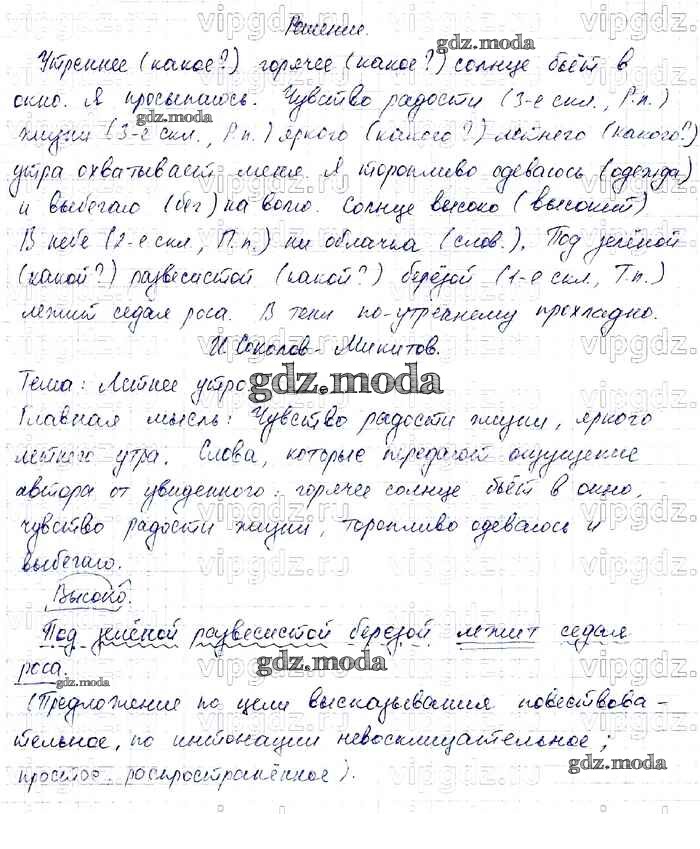 Решение.
Утреннее (какое?) горячее (какое?) солнце бьёт в
окно. Я просыпаюсь. Чувство радости (3-е скл., Р.п.)
жизни (3-е скл., Р.п.) яркого (какого?) летнего (какого?)
утра охватывает меня. Я торопливо одеваюсь (одежда)
и выбегаю (бег) на волю. Солнце высоко (высокий)
В небе (2-е скл., П.п.) ни облачка (слов.). Под зелёной
(какой?) развесистой (какой?) берёзой (1-е скл., Т.п.)
лежит седая роса. В тени по-утреннему прохладно.
И. Соколов-Микитов.
Тема: Летнее утро.
Главная мысль: Чувство радости жизни, яркого
летнего утра. Слова, которые передают ощущение
автора от увиденного: горячее солнце бьёт в окно,
чувство радости жизни, торопливо одеваюсь и
выбегаю.
Высоко.
Под зелёной развесистой берёзой лежит седая
роса.
(Предложение по цели высказывания повествова-
тельное, по интонации невосклицательное;
простое, распространённое).
gdz.moda
vipgdz.ru